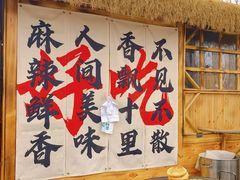 麻辣鲜香
人间美味
香飘十里
不见不散
好吃